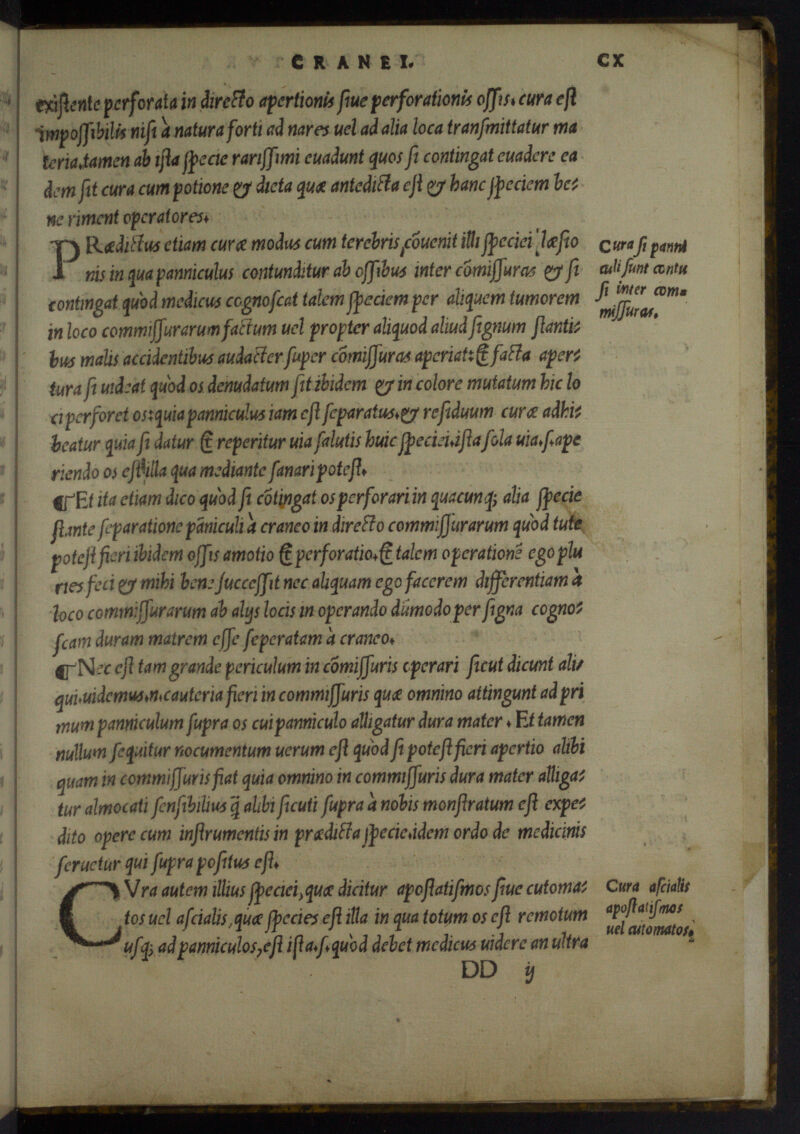 CRANEI. CX
existente perforata in directo apertionis siue perforationis ossis. cura est
impossibilis nisi à natura forti ad nares uel ad alia loca transmittatur ma
teria.tamen ab ista specie rarissimi euadunt quos si contingat euadere ea
dem sit cura cum potione & dieta quæ antedicta est & hanc speciem be⸗
ne riment operatores.
PRædictus etiam curæ modus cum terebris cōuenit illi speciei læsio
nis in qua panniculus contunditur ab ossibus inter cōmissuras & si
contingat quòd medicus cognoscat talem speciem per aliquem tumorem
in loco commissurarum factum uel propter aliquod aliud signum stanti⸗
bus malis accidentibus audacter super cōmissuras aperiat: & facta aper⸗
tura si uideat quòd os denudatum sit ibidem & in colore mutatum hic lo
ci perforet os: quia panniculus iam est separatus. & residuum curæ adhi⸗
beatur quia si datur & reperitur uia salutis huic speciei. ista sola uia. s. ape
riendo os est illa qua mediante sanari potest.
¶ Et ita etiam dico quòd si cōtingat os perforari in quacunq; alia specie
stante separatione pāniculi à craneo in directo commissurarum quòd tute
potest fieri ibidem ossis amotio & perforatio. & talem operationē ego plu
ries feci & mihi bene successit nec aliquam ego facerem differentiam à
loco commissurarum ab alijs locis in operando dūmodo per signa cogno⸗
scam duram matrem esse seperatam à craneo.
¶ Nec est tam grande periculum in cōmissuris operari sicut dicunt ali⸗
qui. uidemus. n. cauteria fieri in commissuris quæ omnino attingunt ad pri
mum panniculum supra os cui panniculo alligatur dura mater. Et tamen
nullum sequitur nocumentum uerum est quòd si potest fieri apertio alibi
quam in commissuris fiat quia omnino in commissuris dura mater alliga⸗
tur almocati sensibilius q̄ alibi sicuti supra à nobis monstratum est expe⸗
dito opere cum instrumentis in prædicta specie. idem ordo de medicinis
seruetur qui supra positus est.
CVra autem illius speciei, quæ dicitur apostatismos siue cutoma⸗
tos uel ascialis, quæ species est illa in qua totum os est remotum
usq; ad panniculos, est ista. s. quòd debet medicus uidere an ultra
DD ij
Cura si panni
culi sunt contu
si inter com⸗
missuras.
Cura ascialis
apostatismos
uel cutomatos.